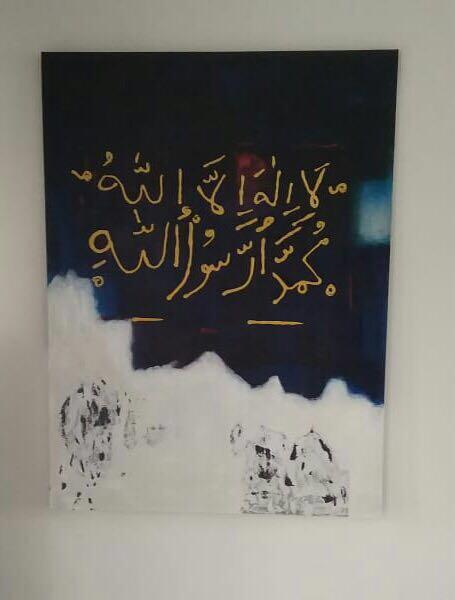 لَا اِلٰهَ اِلَّا اللّٰهُ
مُحَمَّدٌ رَّسُولُ اللّٰهِ